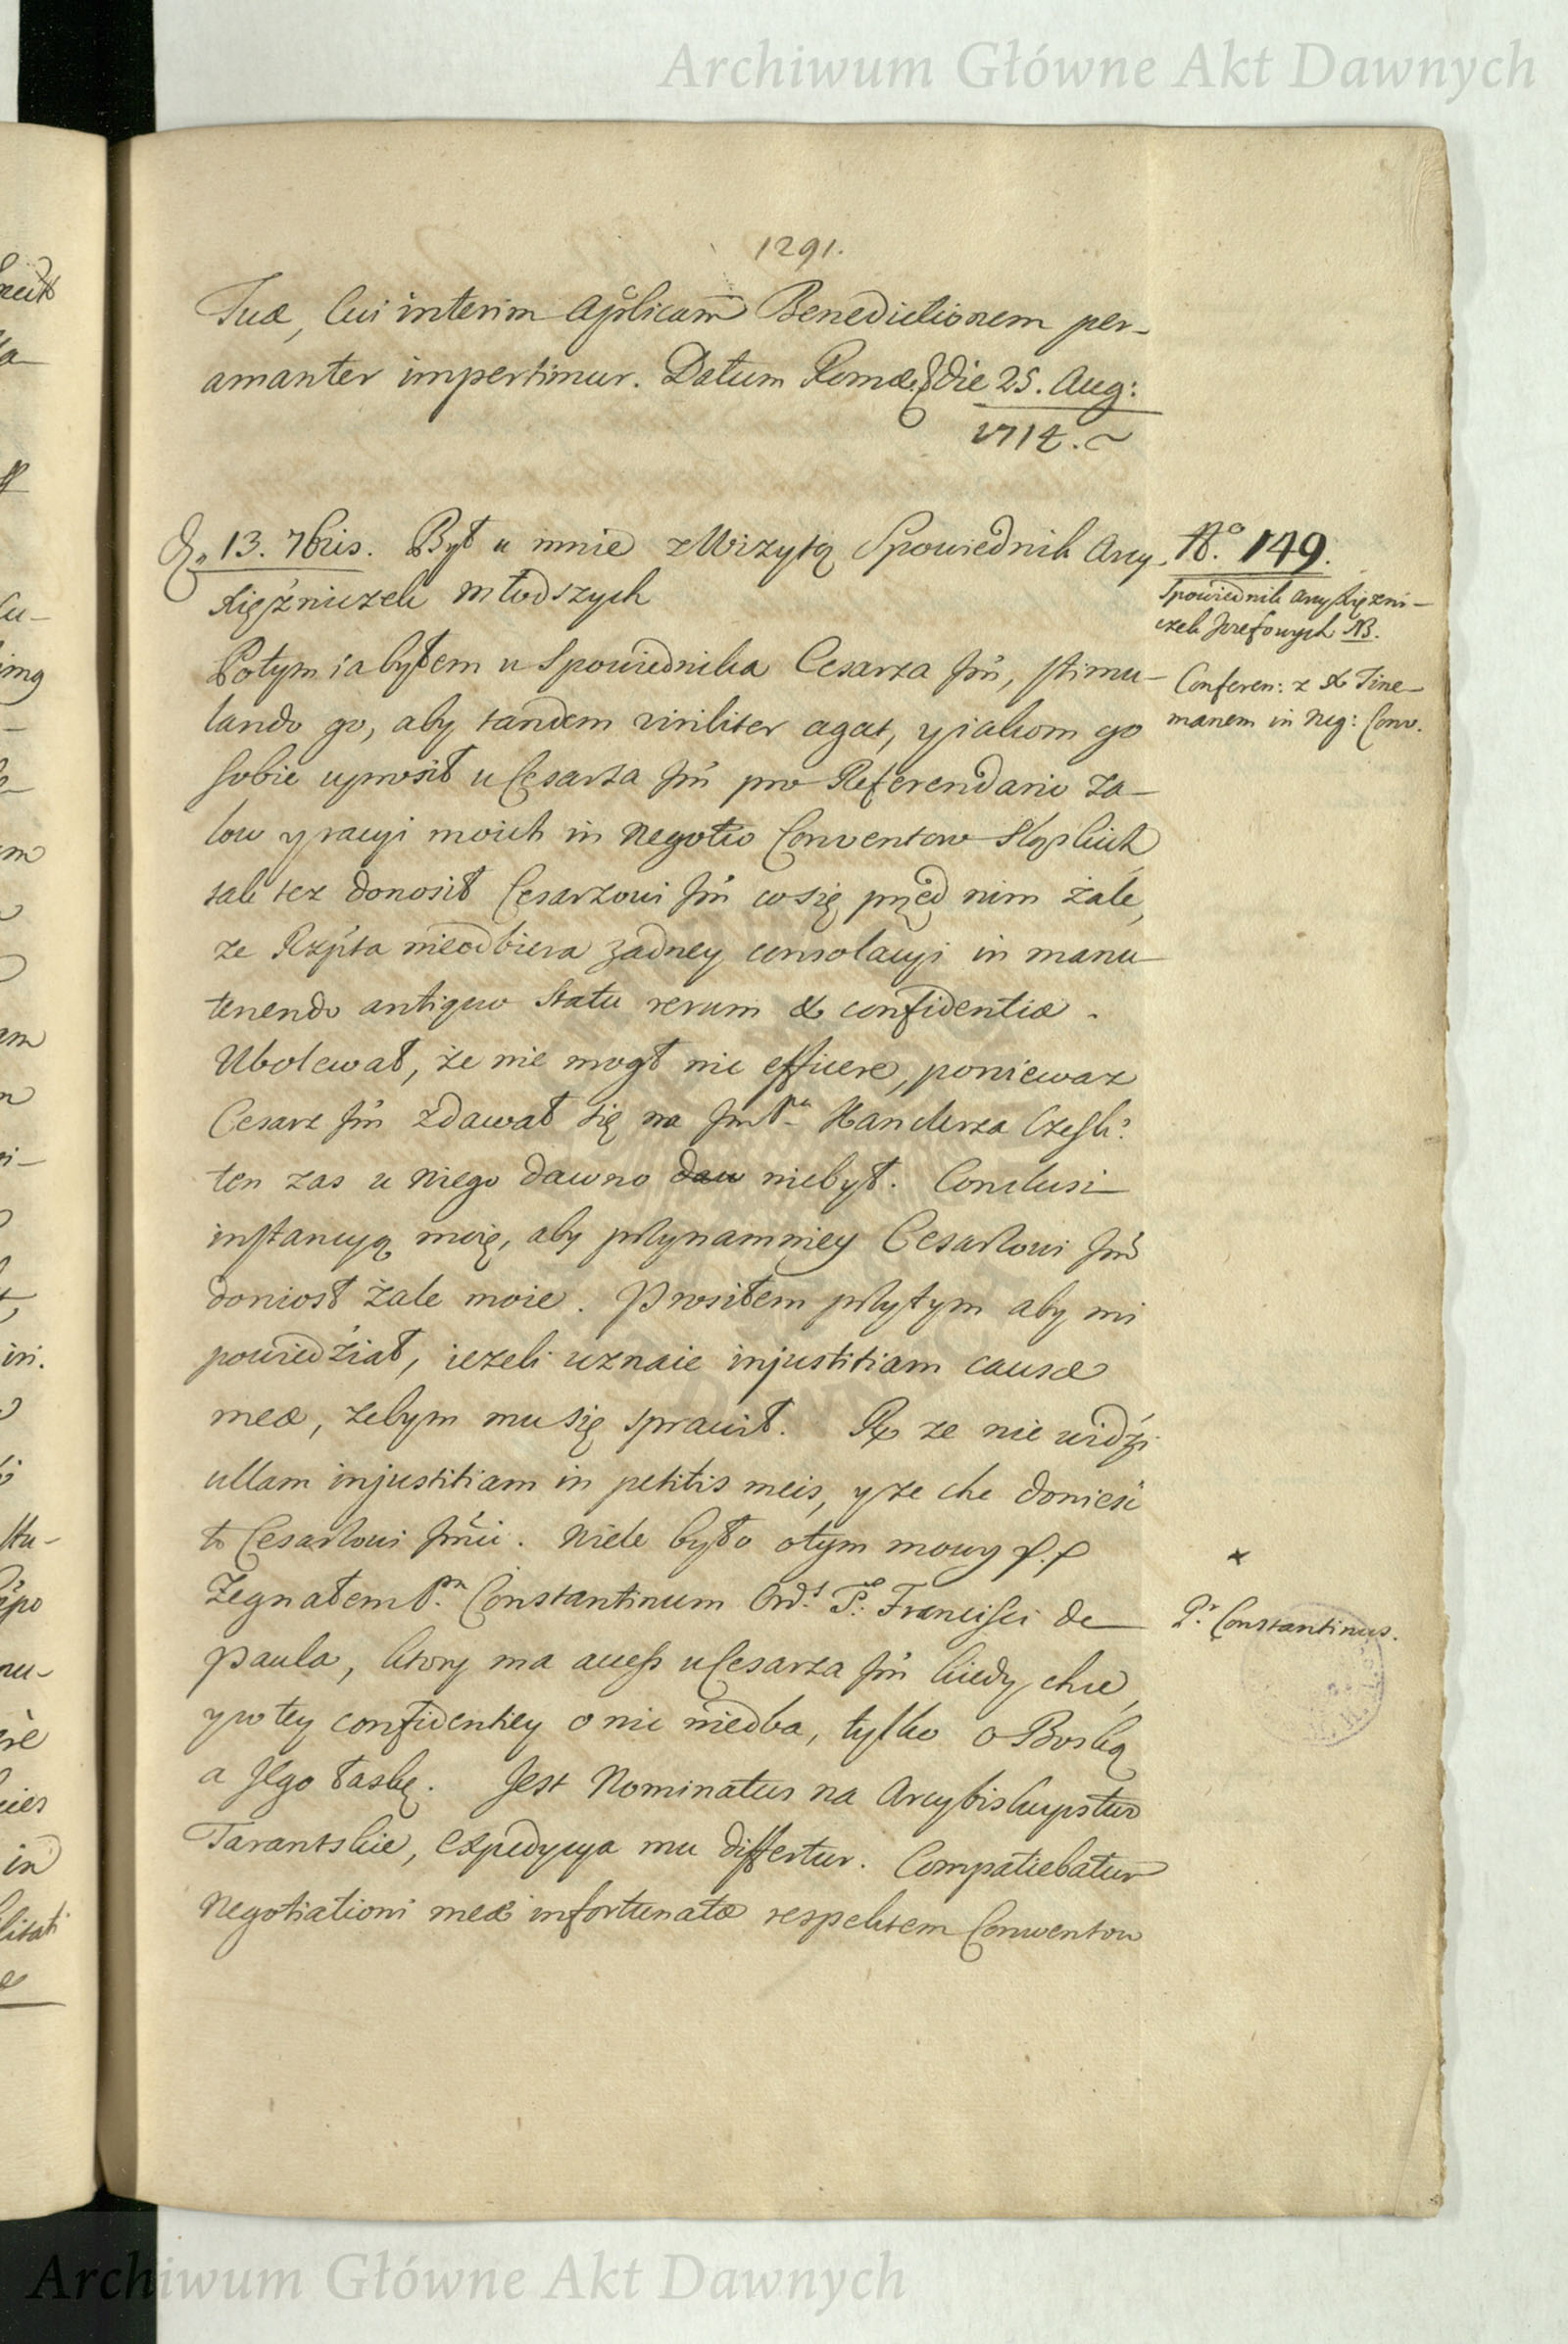 Archiwum Główne Akt Dawnych
1291.
Tuæ, Cui interim Aplicam Benedictionem per-
amanter impertimur. Datum Romæ die 25. Aug:
1714.
D. 13. 7bris. Był u mnie z Wizytą Spowiednik Arcy
Xiężniczek młodszych
No. 149.
Spowiednik Arcyxiężni-
czek Jozefowych NB.
Potym ia byłem u Spowiednika Cesarza Jm̃, stimu-
lando go, aby tandem viriliter agat, y iakom go
sobie uprosił u Cesarza Jm̃ pro Referendario za-
low y racyi moich in Negotio Conventow Sląskich
tak tez donosił Cesarzowi Jm̃ co się przed nim żalę,
ze Rzpta nieodbiera zadney consolacyi in manu-
tenendo antiquo Statu rerum & confidentiæ.
Conferen: z X Tine-
manem in Neg: Conv.
Ubolewał, że nie mogł nic efficere, poniewaz
Cesarz Jm̃ zdawał się na Jm Pa Kanclerza Czesk:
ten zas u niego dawno dau niebył. Conclusi
instancyą moią, aby przynamniey Cesarzowi Jm̃
doniosł żale moie. Prosiłem przytym aby mi
powiedźiał, iezeli uznaie injustitiam causæ
meæ, zebym mu się sprawił. Rx ze nie widźi
ullam injustitiam in petitis meis, y ze chce donieść
to Cesarzowi Jm̃ci. Wiele było otym mowy p.p
Zegnałem Pm Constantinum Ord. S. Francisci de
Paula, ktory ma access u Cesarza Jm̃ kiedy chce,
y po tey confidentiey o nic niedba, tylko o Boską
a Jego łaskę. Jest Nominatus na Arcybiskupstwo
Tarantskie, Expedycya mu differtur. Compatiebatur
Negotiationi meæ infortunatæ respektem Conventow
P. Constantinus.
Archiwum Główne Akt Dawnych